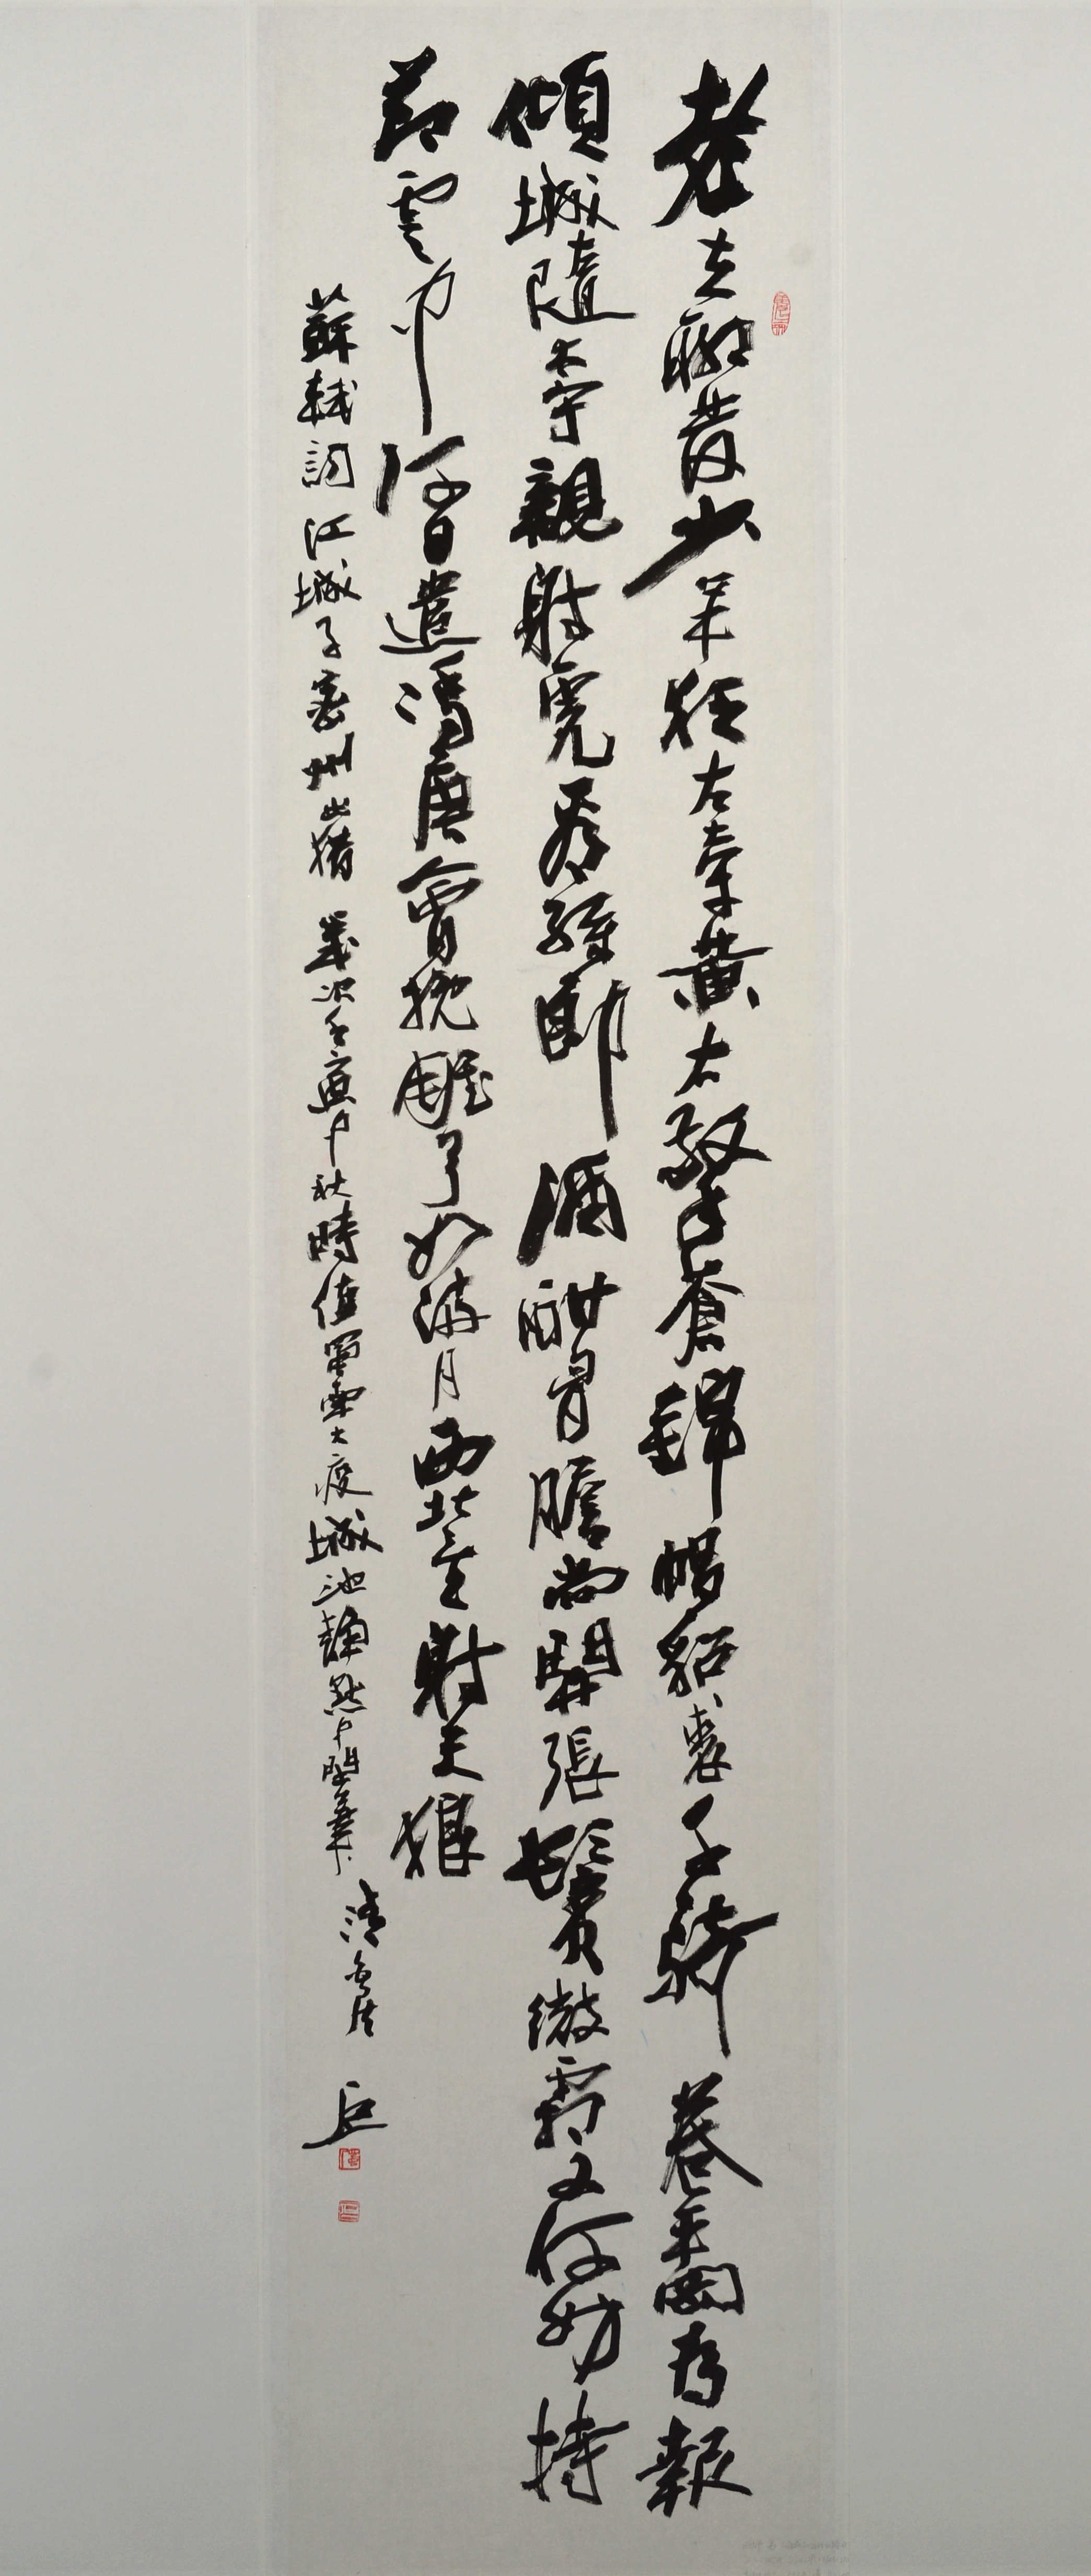 老夫聊發少年狂左牽黃右擎蒼錦帽貂裘千騎卷平岡為報
傾城隨太守親射虎看孫郎酒酣胷膽尚開張鬢微霜又何妨持
節雲中何日遣馮唐會挽雕弓如滿月西北望射天狼
蘇軾詞江城子密州出獵 歲次壬寅中秋時值蜀大疫城池靜然 清居